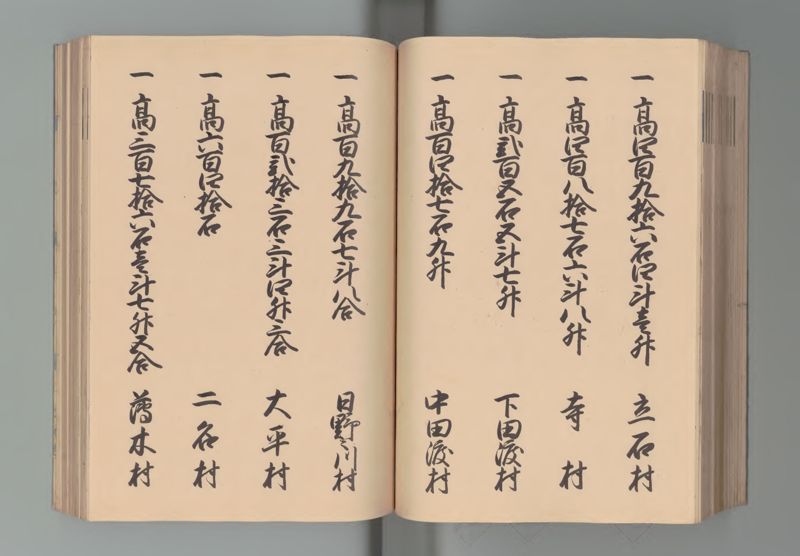 一 高四百九拾六石四斗壱升 立石村
一 高四百八拾七石六斗八升 寺村
一 高弐百五石五斗七升 下田渡村
一 高百四拾七石九升 中田渡村
一 高百九拾九石七斗八合 日野々川村
一 高百弐拾三石三斗四升三合 大平村
一 高六百四拾石 二名村
一 高三百七拾六石壱斗七升五合 薄木村